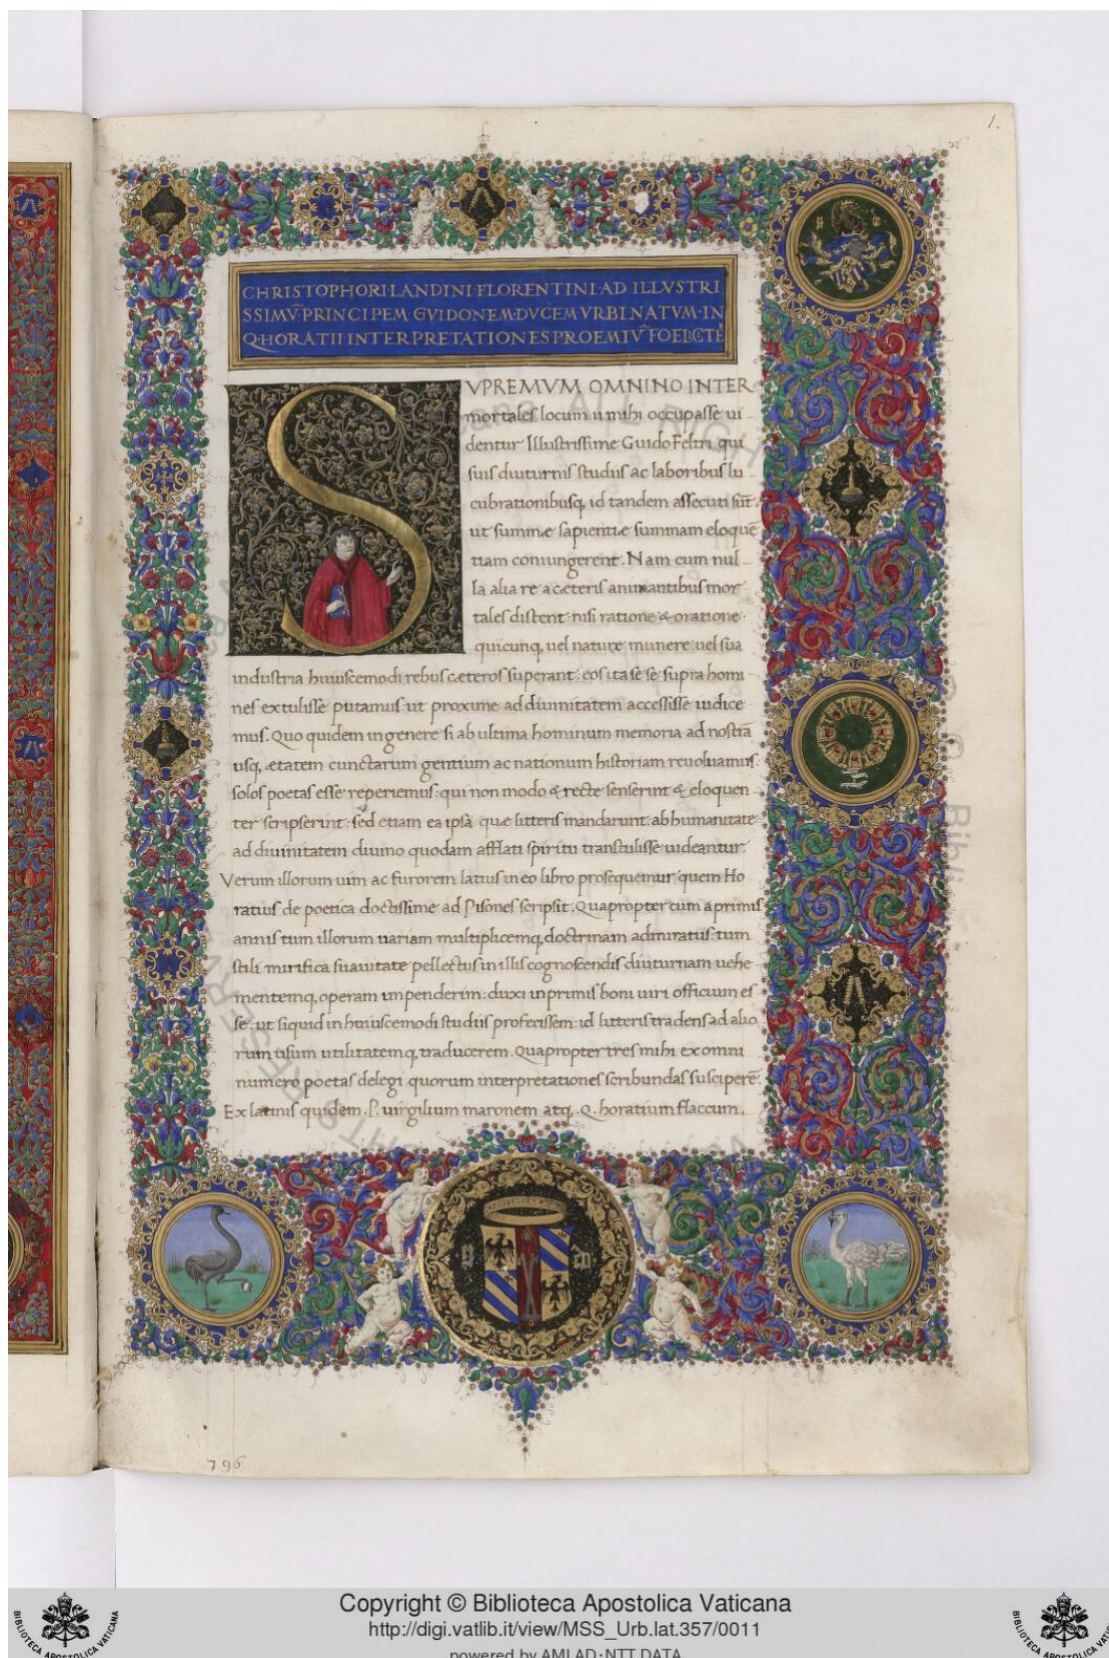 1.
CHRISTOPHORI LANDINI FLORENTINI AD ILLVSTRI
SSIMV̄ PRINCIPEM GVIDONEM·DVCEM VRBINATVM·IN
Q·HORATII INTERPRETATIONES PROEMIV̄ FOELICITE͂
SVPREMVM OMNINO INTER
mortales locum ii mihi occupasse ui-
dentur Illustrissime Guido Feltri qui
suis diuturnis studiis ac laboribus lu
cubrationibusq; id tandem assecuti sūt
ut summæ sapientiæ summam eloquē
tiam coniungerent. Nam cum nul-
la alia re a cæteris animantibus mor
tales distent nisi ratione & oratione:
quicunq; uel naturæ munere uel sua
industria huiuscemodi rebus cæteros superant: eos ita se se supra homi-
nes extulisse putamus: ut proxime ad diuinitatem accessisse iudice
mus. Quo quidem in genere si ab ultima hominum memoria ad nostrā
usq; ætatem cunctarum gentium ac nationum historiam reuoluamus:
solos poetas esse reperiemus: qui non modo & recte senserint & eloquen
ter scripserint: sed etiam ea ipsa quæ litteris mandarunt: ab humanitate
ad diuinitatem diuino quodam afflati spiritu transtulisse uideantur.
Verum illorum uim ac furorem latius in eo libro prosequemur: quem Ho
ratius de poetica doctissime ad Pisones scripsit. Quapropter cum a primis
annis tum illorum uariam multiplicemq; doctrinam admiratus: tum
stili mirifica suauitate pellectus in illis cognoscendis diuturnam uehe
mentemq; operam impenderim: duxi inprimis boni uiri officium es
se: ut siquid in huiuscemodi studiis profecissem: id litteris tradens ad alio
rum usum utilitatemq; traducerem. Quapropter tres mihi ex omni
numero poetas delegi quorum interpretationes scribundas susciperē:
Ex latinis quidem .P. uirgilium maronem atq; .Q. horatium flaccum.
796
Copyright © Biblioteca Apostolica Vaticana
http://digi.vatlib.it/view/MSS_Urb.lat.357/0011
powered by AMLAD·NTT DATA
BIBLIOTECA APOSTOLICA VATICANA